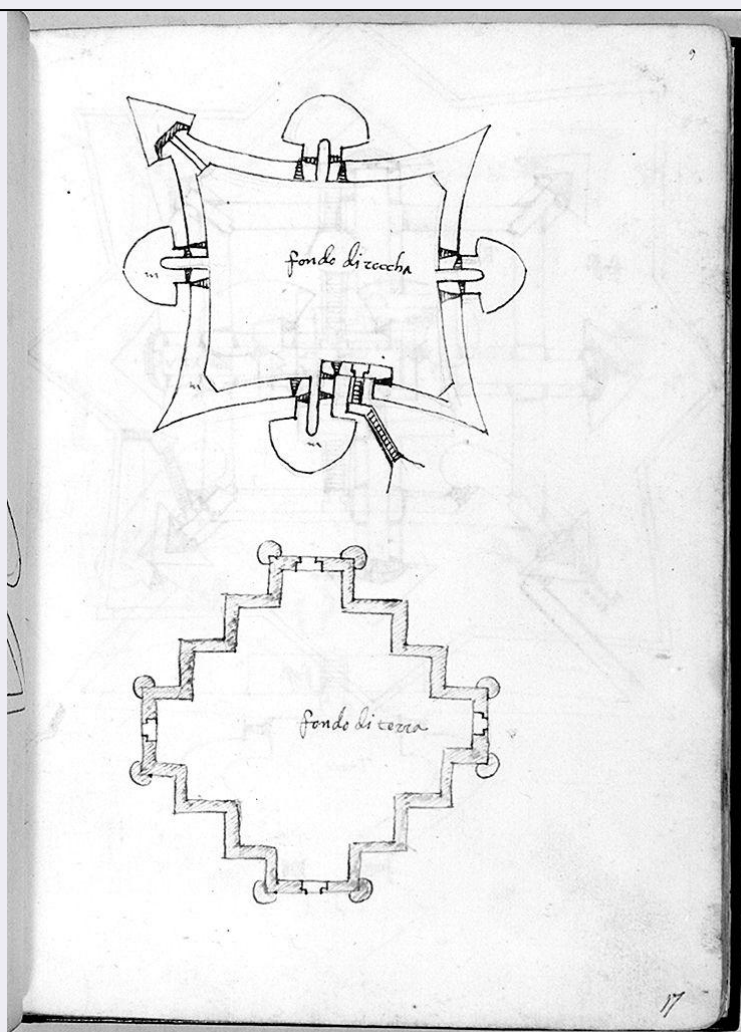 9
fondo di roccha
fondo di terra
17